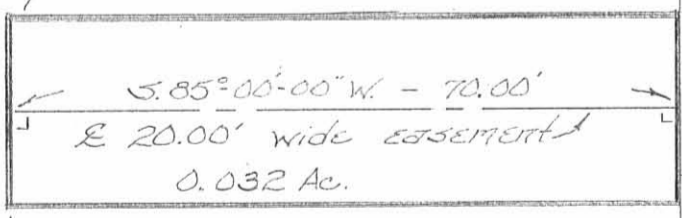 S.85°-00'-00"W. - 70.00'
℄ 20.00' wide easement
0.032 Ac.